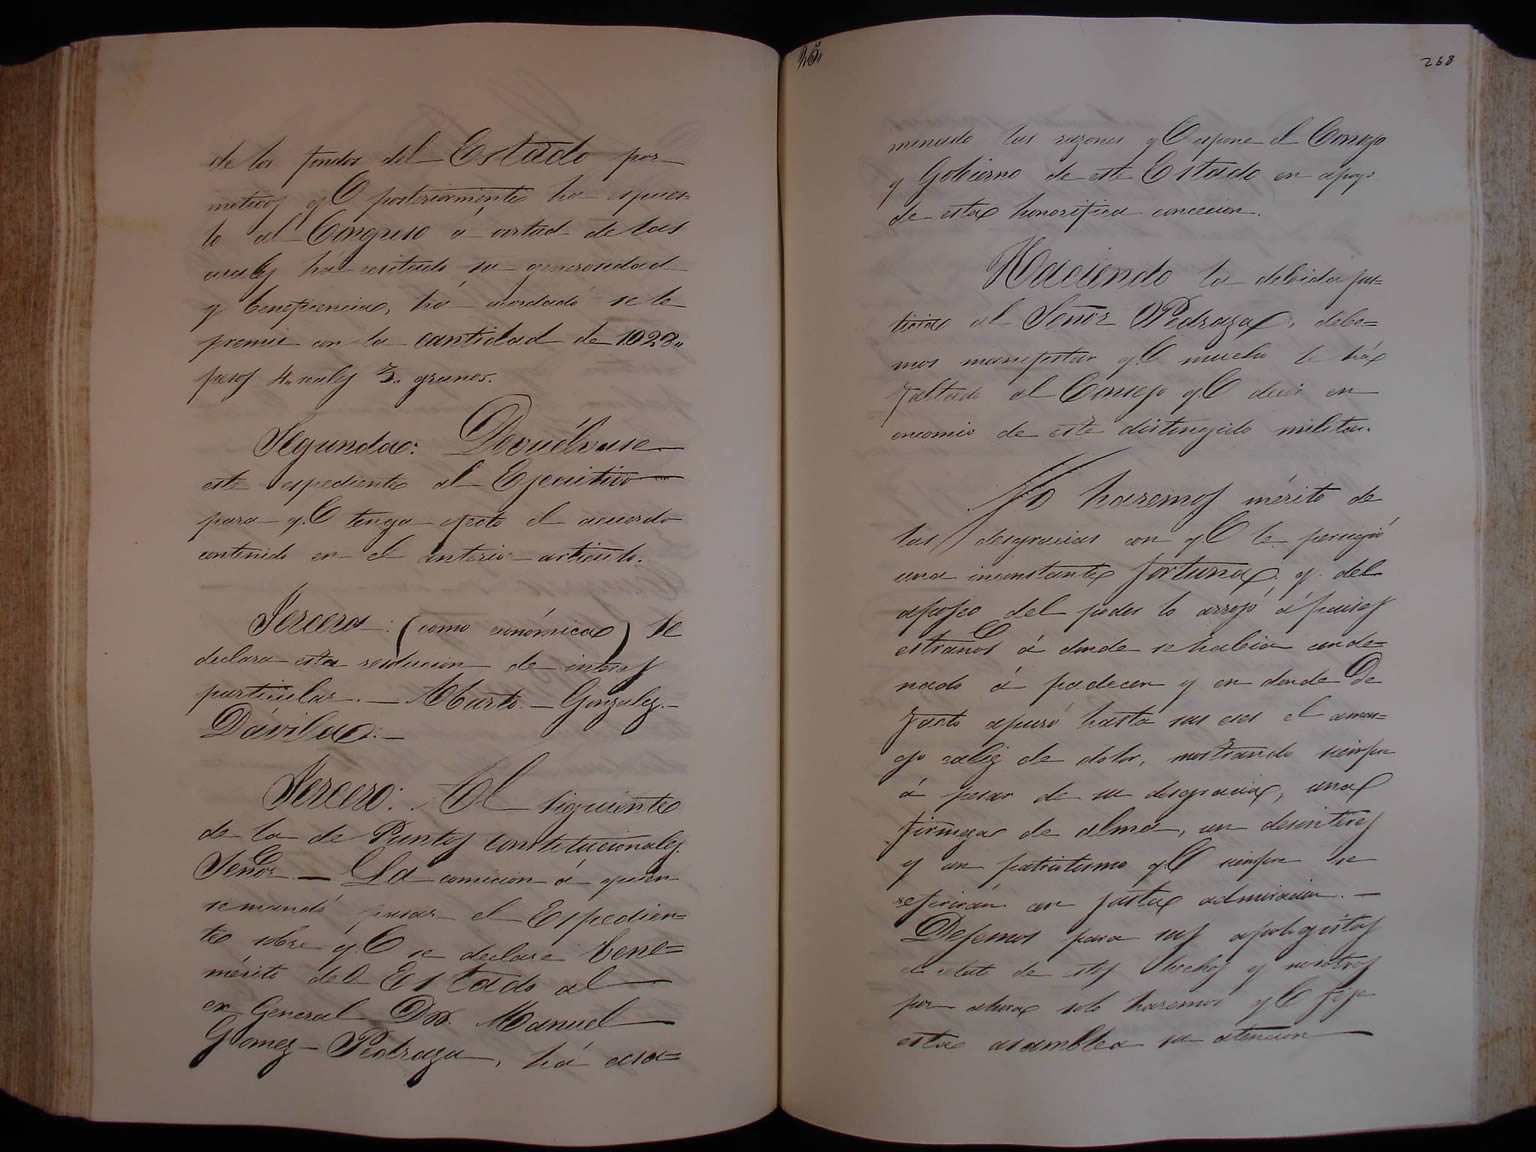 de los fondos del Estado por
motivos qe. posteriormente ha espues-
to al Congreso á virtud de las
cuales ha exitado su generosidad
y beneficencia, há acordado se le
premie con la cantidad de 1028,,
pesos 4,, reales 3,, granos.
Segunda: Devuélvase
este espediente al Ejecutivo
para qe. tenga efecto el acuerdo
contenido en el anterior artículo.
Tercera: (como económica) Se
declara esta resolucion de interes
particular. — Marto. — Gonzalez. —
Dávila. —
Tercero: Al siguiente
de la de Puntos constitucionales
Señor. — La comicion á quien
se mandó pasar el Espedien-
te sobre qe. se declare bene=
mérito del Estado al
ex General Don Manuel
Gomez Pedraza, há ecsa=
25.
268
minado las razones qe. espone el Consejo
y Gobierno de este Estado en apoyo
de esta honorifica concecion.
Haciendo la debida jus-
ticia al Señor Pedraza, debe=
mos manifestar qe. mucho le há
faltado al Consejo qe. decir en
encomio de este distinguido militar.
No haremos mérito de
las desgracias con qe. le persiguió
una inconstante fortuna, y del
apogeo del poder lo arrojó á paises
estraños á donde se habia conde=
nado á padecer y en donde De
facto apuró hasta sus eces el amar-
go caliz de dolor, mostrando siempre
á pesar de su desgracia, una
firmeza de alma, un desinteres
y un patriotismo qe. siempre se
referirán con justa admiracion. —
Dejemos para sus apologistas
el relato de estos hechos y nosotros
por ahora solo haremos qe. fije
esta asamblea su atencion